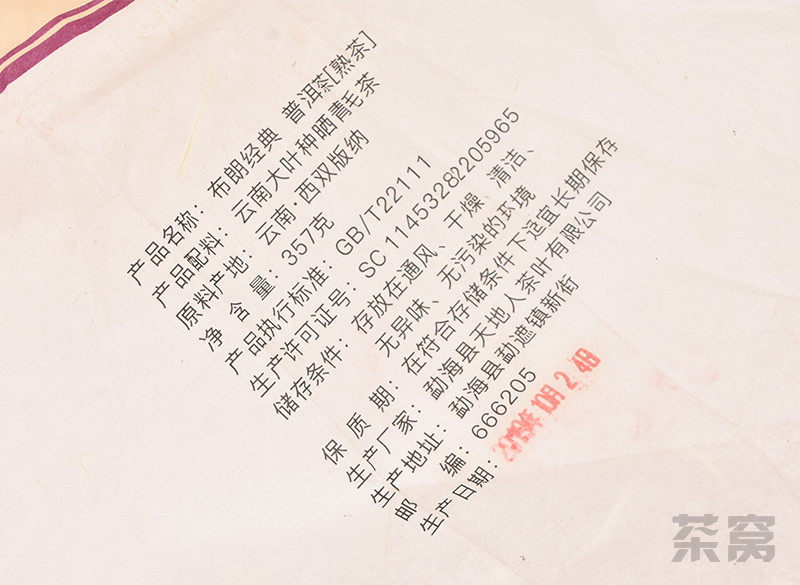 产品名称：布朗经典 普洱茶[熟茶]
产品配料：云南大叶种晒青毛茶
原料产地：云南·西双版纳
净含量：357克
产品执行标准：GB/T22111
生产许可证号：SC 11453282205965
储存条件：存放在通风、干燥、清洁、
无异味、无污染的环境
保质期：在符合存储条件下适宜长期保存
生产厂家：勐海县天地人茶叶有限公司
生产地址：勐海县勐遮镇新街
邮编：666205
生产日期：2019年10月24日
茶窝